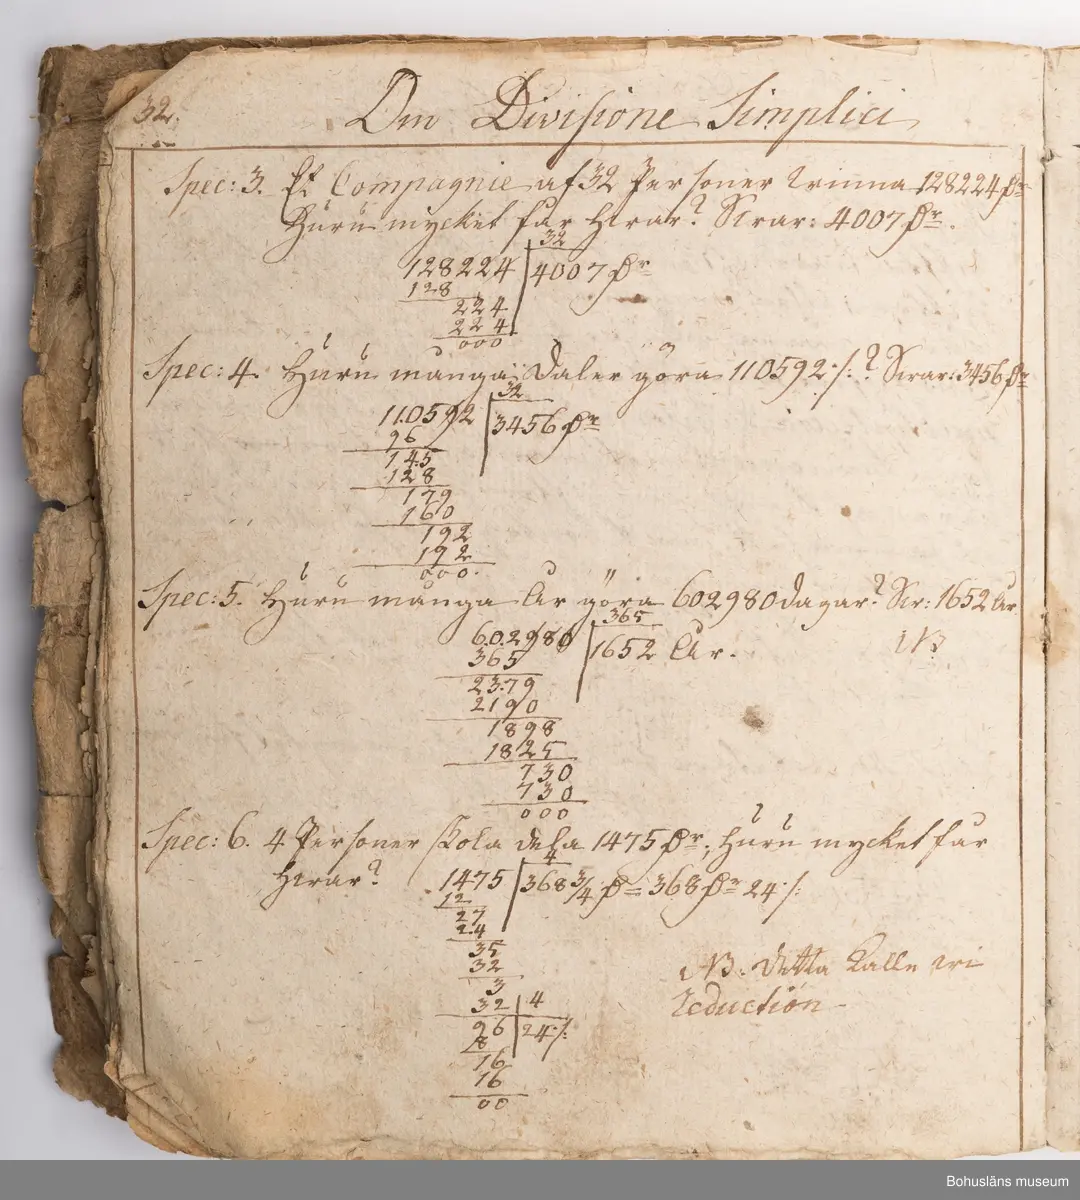 32.
Om Divisione Simplici
Spec: 3. Et Compagnie af 32 Personer winna 128224 Dr
Huru mycket får hwar? Swar: 4007 Dr.
32
128224 4007 Dr
128
224
224
000
Spec: 4. Huru många Daler göra 110592 ./.? Swar: 3456 Dr
32
11.0592 3456 Dr
96
14.5
128
179
160
192
192
000.
Spec: 5. Huru många År göra 602980 dagar? Sw: 1652 År
365
6.0.2980 1652 År.
NB
365
23.79
2190
1898
1825
730
730
000
Spec: 6. 4 Personer skola dela 1475 Dr; Huru mycket får
hwar?
4
1475 368 3/4 D = 368 Dr 24 ./.
12
27
24
35
32
3
32 4
96 24 ./.
8
16
16
00
NB. Detta Kalle wi
Reduction
Bohusläns museum